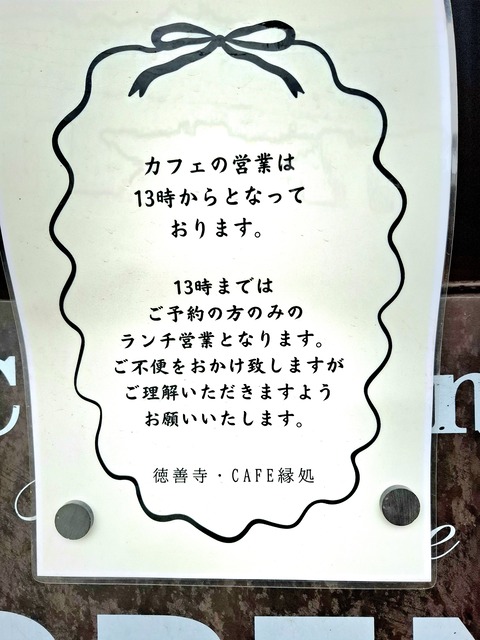 カフェの営業は
13時からとなって
おります。
13時までは
ご予約の方のみの
ランチ営業となります。
ご不便をおかけ致しますが
ご理解いただきますよう
お願いいたします。
徳善寺・CAFE縁処